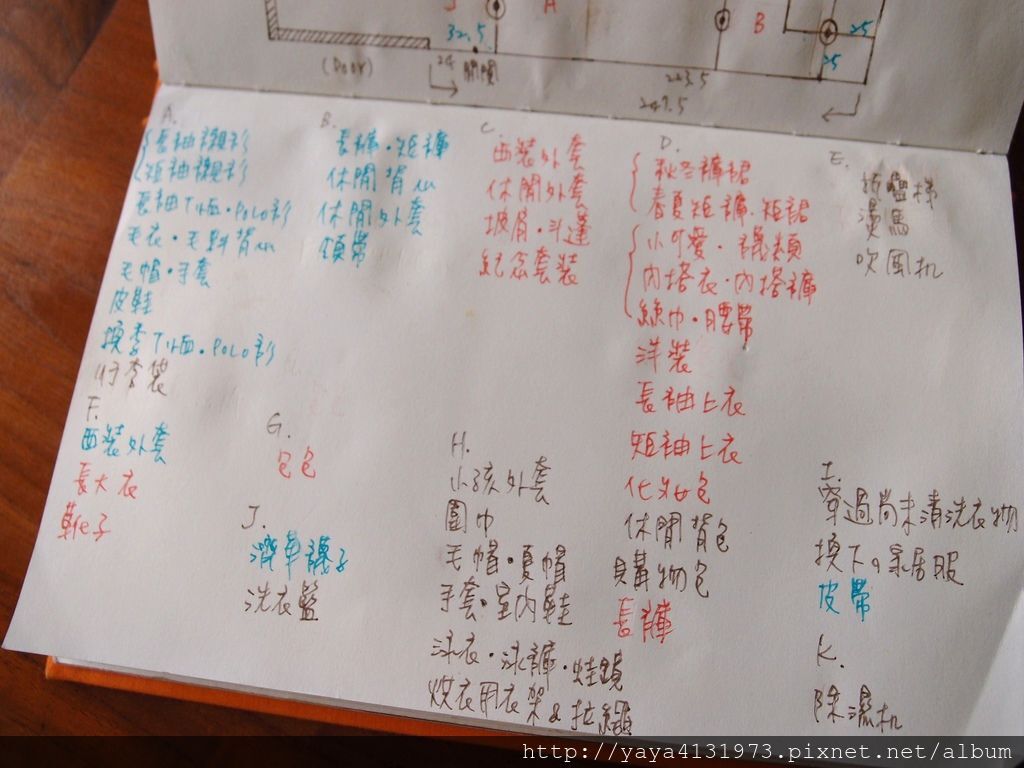 J
A
B
32.5
25
25
(Door)
24
開關
223.5
247.5
A.
長袖襯衫
短袖襯衫
長袖T恤.POLO衫
毛衣.毛料背心
毛帽.手套
皮鞋
換季T恤.POLO衫
行李袋
B.
長褲.短褲
休閒背心
休閒外套
領帶
C.
西裝外套
休閒外套
披肩.斗蓬
紀念套裝
D.
秋冬褲裙
春夏短褲.短裙
小可愛.襪類
內搭衣.內搭褲
絲巾.腰帶
洋裝
長袖上衣
短袖上衣
化妝包
休閒背包
購物包
長褲
E.
燙馬
吹風机
F.
西裝外套
長大衣
靴子
G.
包包
H.
小孩外套
圍巾
毛帽.夏帽
手套.室內鞋
泳衣.泳褲.蛙鏡
烘衣用衣架&拉繩
I.
穿過尚未清洗衣物
換下の家居服
皮帶
J.
襪子
洗衣籃
K.
除濕机
http://yaya4131973.pixnet.net/album